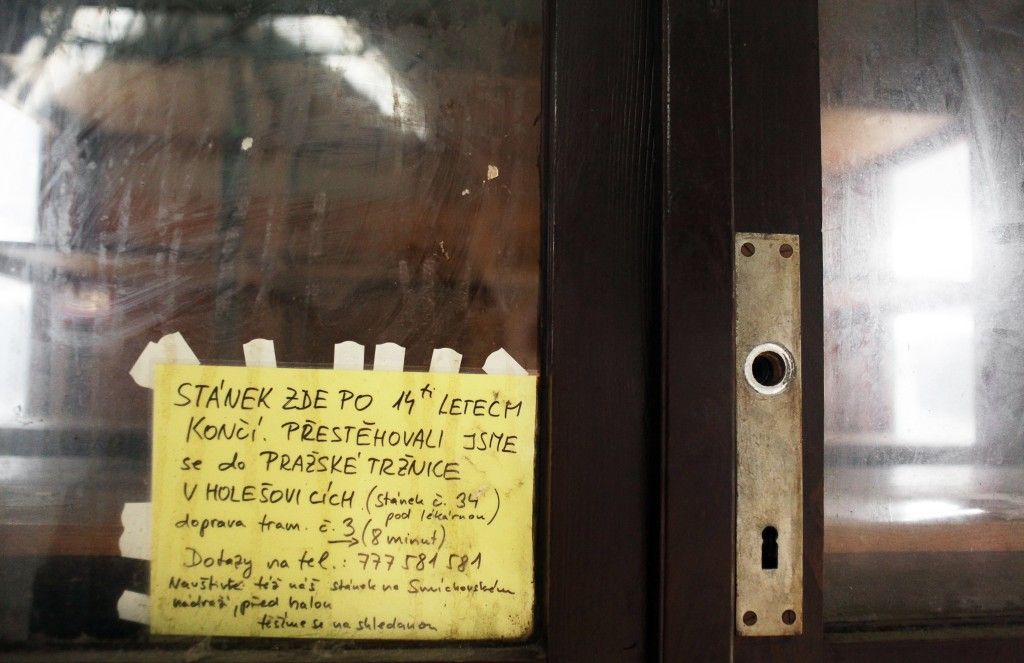 STÁNEK ZDE PO 14ti LETECH
KONČÍ. PŘESTĚHOVALI JSME
se do PRAŽSKÉ TRŽNICE
V HOLEŠOVICÍCH (stánek č. 34
pod lékárnou)
doprava tram. č. 3 (8 minut)
Dotazy na tel.: 777 581 581
Navštivte též náš stánek na Smíchovském
nádraží, před halou
těšíme se na shledanou